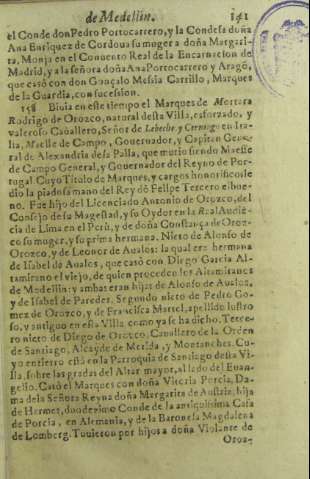 de Medellin. 141
el Conde don Pedro Portocarrero, y la Condesa doña
Ana Enriquez de Cordoua su muger a doña Margari-
ta, Monja en el Conuento Real de la Encarnacion de
Madrid, y a la señora doña Ana Portocarrero y Aragõ,
que casò con don Gonçalo Messia Carrillo, Marques
de la Guardia, con sucession.
158 Biuia en este tiempo el Marques de Mortara
Rodrigo de Orozco, natural desta Villa, esforzado, y
valeroso Cauallero, Señor de en Ita-
lia, Maesse de Campo, Gouernador, y Capitan Gene-
ral de Alexandria dela Palla, que murio siendo Maesse
de Campo General, y Gouernador del Reyno de Por-
tugal Cuyo Titulo de Marques, y cargos honorificos le
dio la piadosa mano del Rey dõ Felipe Tercero el bue-
no. Fue hijo del Licenciado Antonio de Orozco, del
Consejo de su Magestad, y su Oydor en la Real Audiẽ-
cia de Lima en el Perù, y de doña Constança de Oroz-
co su muger, y su prima hermana. Nieto de Alonso de
Orozco, y de Leonor de Aualos: la qual era hermana
de Isabel de Aualos, que casò con Diego Garcia Al-
tamirano el viejo, de quien proceden los Altamiranos
de Medellin: y ambas eran hijas de Alonso de Aualos,
y de Isabel de Paredes. Segundo nieto de Pedro Go-
mez de Orozco, y de Francisca Martel, apellido lustro
so, y antiguo en esta Villa, como ya se ha dicho. Terce-
ro nieto de Diego de Orozco, Cauallero de la Orden
de Santiago, Alcayde de Merida, y Montanches. Cu-
yo entierro està en la Parroquia de Santiago desta Vi-
lla, sobre las gradas del Altar mayor, al lado del Euan-
gelio. Casò el Marques con doña Vitoria Porcia, Da-
ma dela Señora Reyna doña Margarita de Austria, hija
de Hermes, duodezimo Conde de la antiquissima Casa
de Porcia, en Alemania, y de la Baronesa Magdalena
de Lomberg. Tuuieron por hijos a doña Violante de
Oroz-